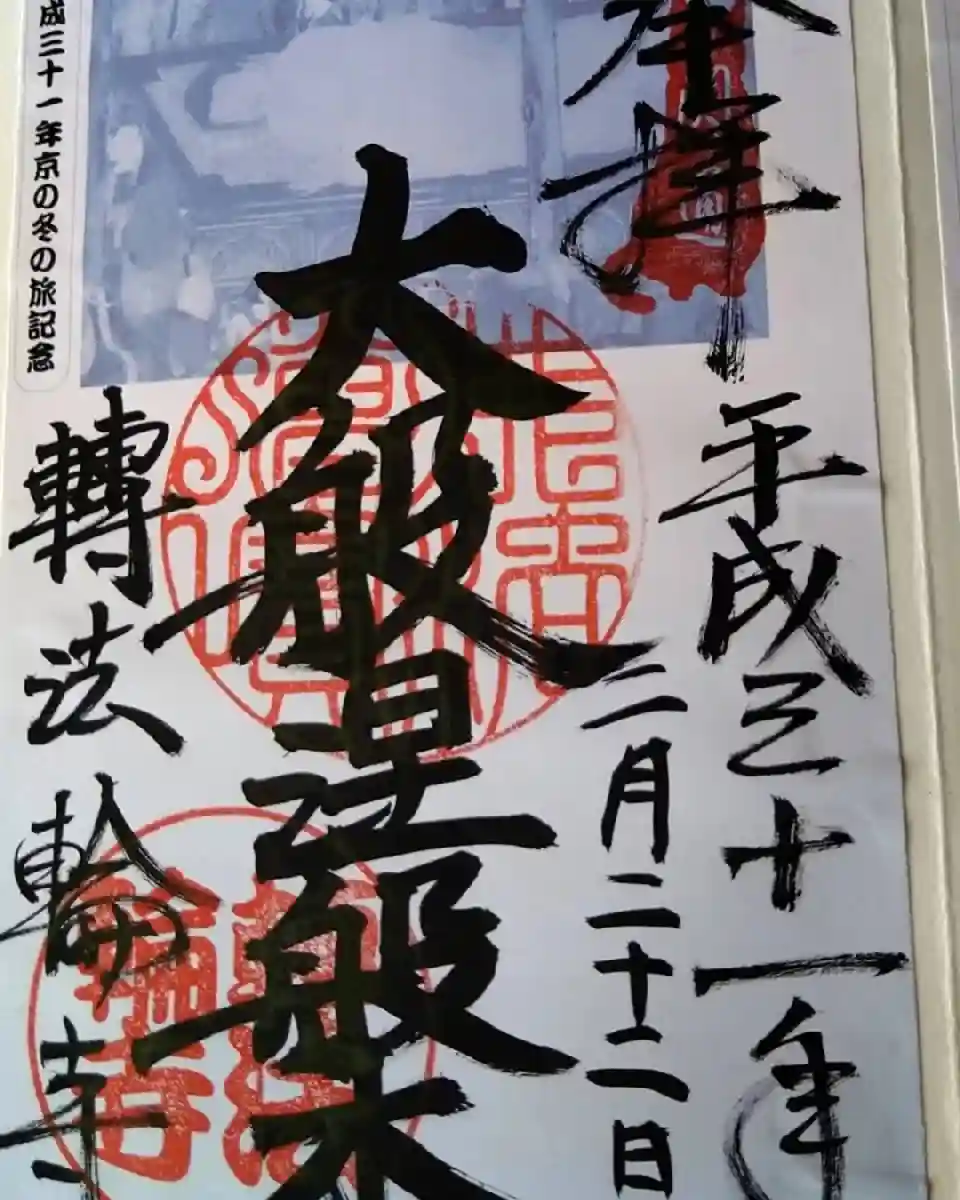 奉拝
平成三十一年
二月二十二日
大般涅槃
轉法輪寺
成三十一年京の冬の旅記念
轉法
輪寺